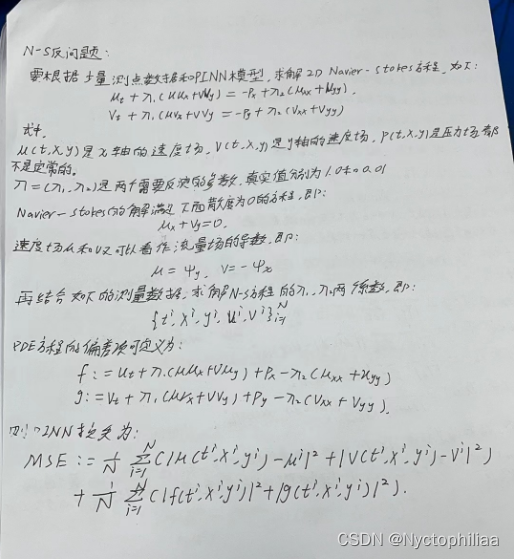 N-S反问题:
需根据少量测点数据和PINN模型, 求解2D Navier-Stokes方程, 如下:
μt + π1(μμx+Vμy) = -Px+π2(μxx+μyy),
Vt + π1(μVx+VVy) = -Py+π2(Vxx+Vyy)
式中,
μ(t,x,y)是x轴的速度场, V(t,x,y)是y轴的速度场, P(t,x,y)是压力场, 都
不是定常的。
π=(π1,π2)是两个需要反演的参数, 真实值分别为1.0和0.01
Navier-Stokes的解满足下面散度为0的方程, 即:
μx+Vy=0.
速度场μ和V又可以看作流量场的导数, 即:
μ = ψy, V=-ψx
再结合如下的测量数据, 求解N-S方程的π1, π2两个系数, 即:
{t^i, x^i, y^i, μ^i, v^i}_{i=1}^N
PDE方程的偏差项可定义为:
f := μt+π1(μμx+Vμy)+Px-π2(μxx+μyy)
g := Vt + π1(μVx+VVy)+Py-π2(Vxx+Vyy).
则PINN损失为:
MSE := 1/N Σ_{i=1}^N (|μ(t^i,x^i,y^i)-μ^i|²+|V(t^i,x^i,y^i)-V^i|²)
+ 1/N Σ_{i=1}^N (|f(t^i,x^i,y^i)|²+|g(t^i,x^i,y^i)|²).
CSDN @Nyctophiliaa